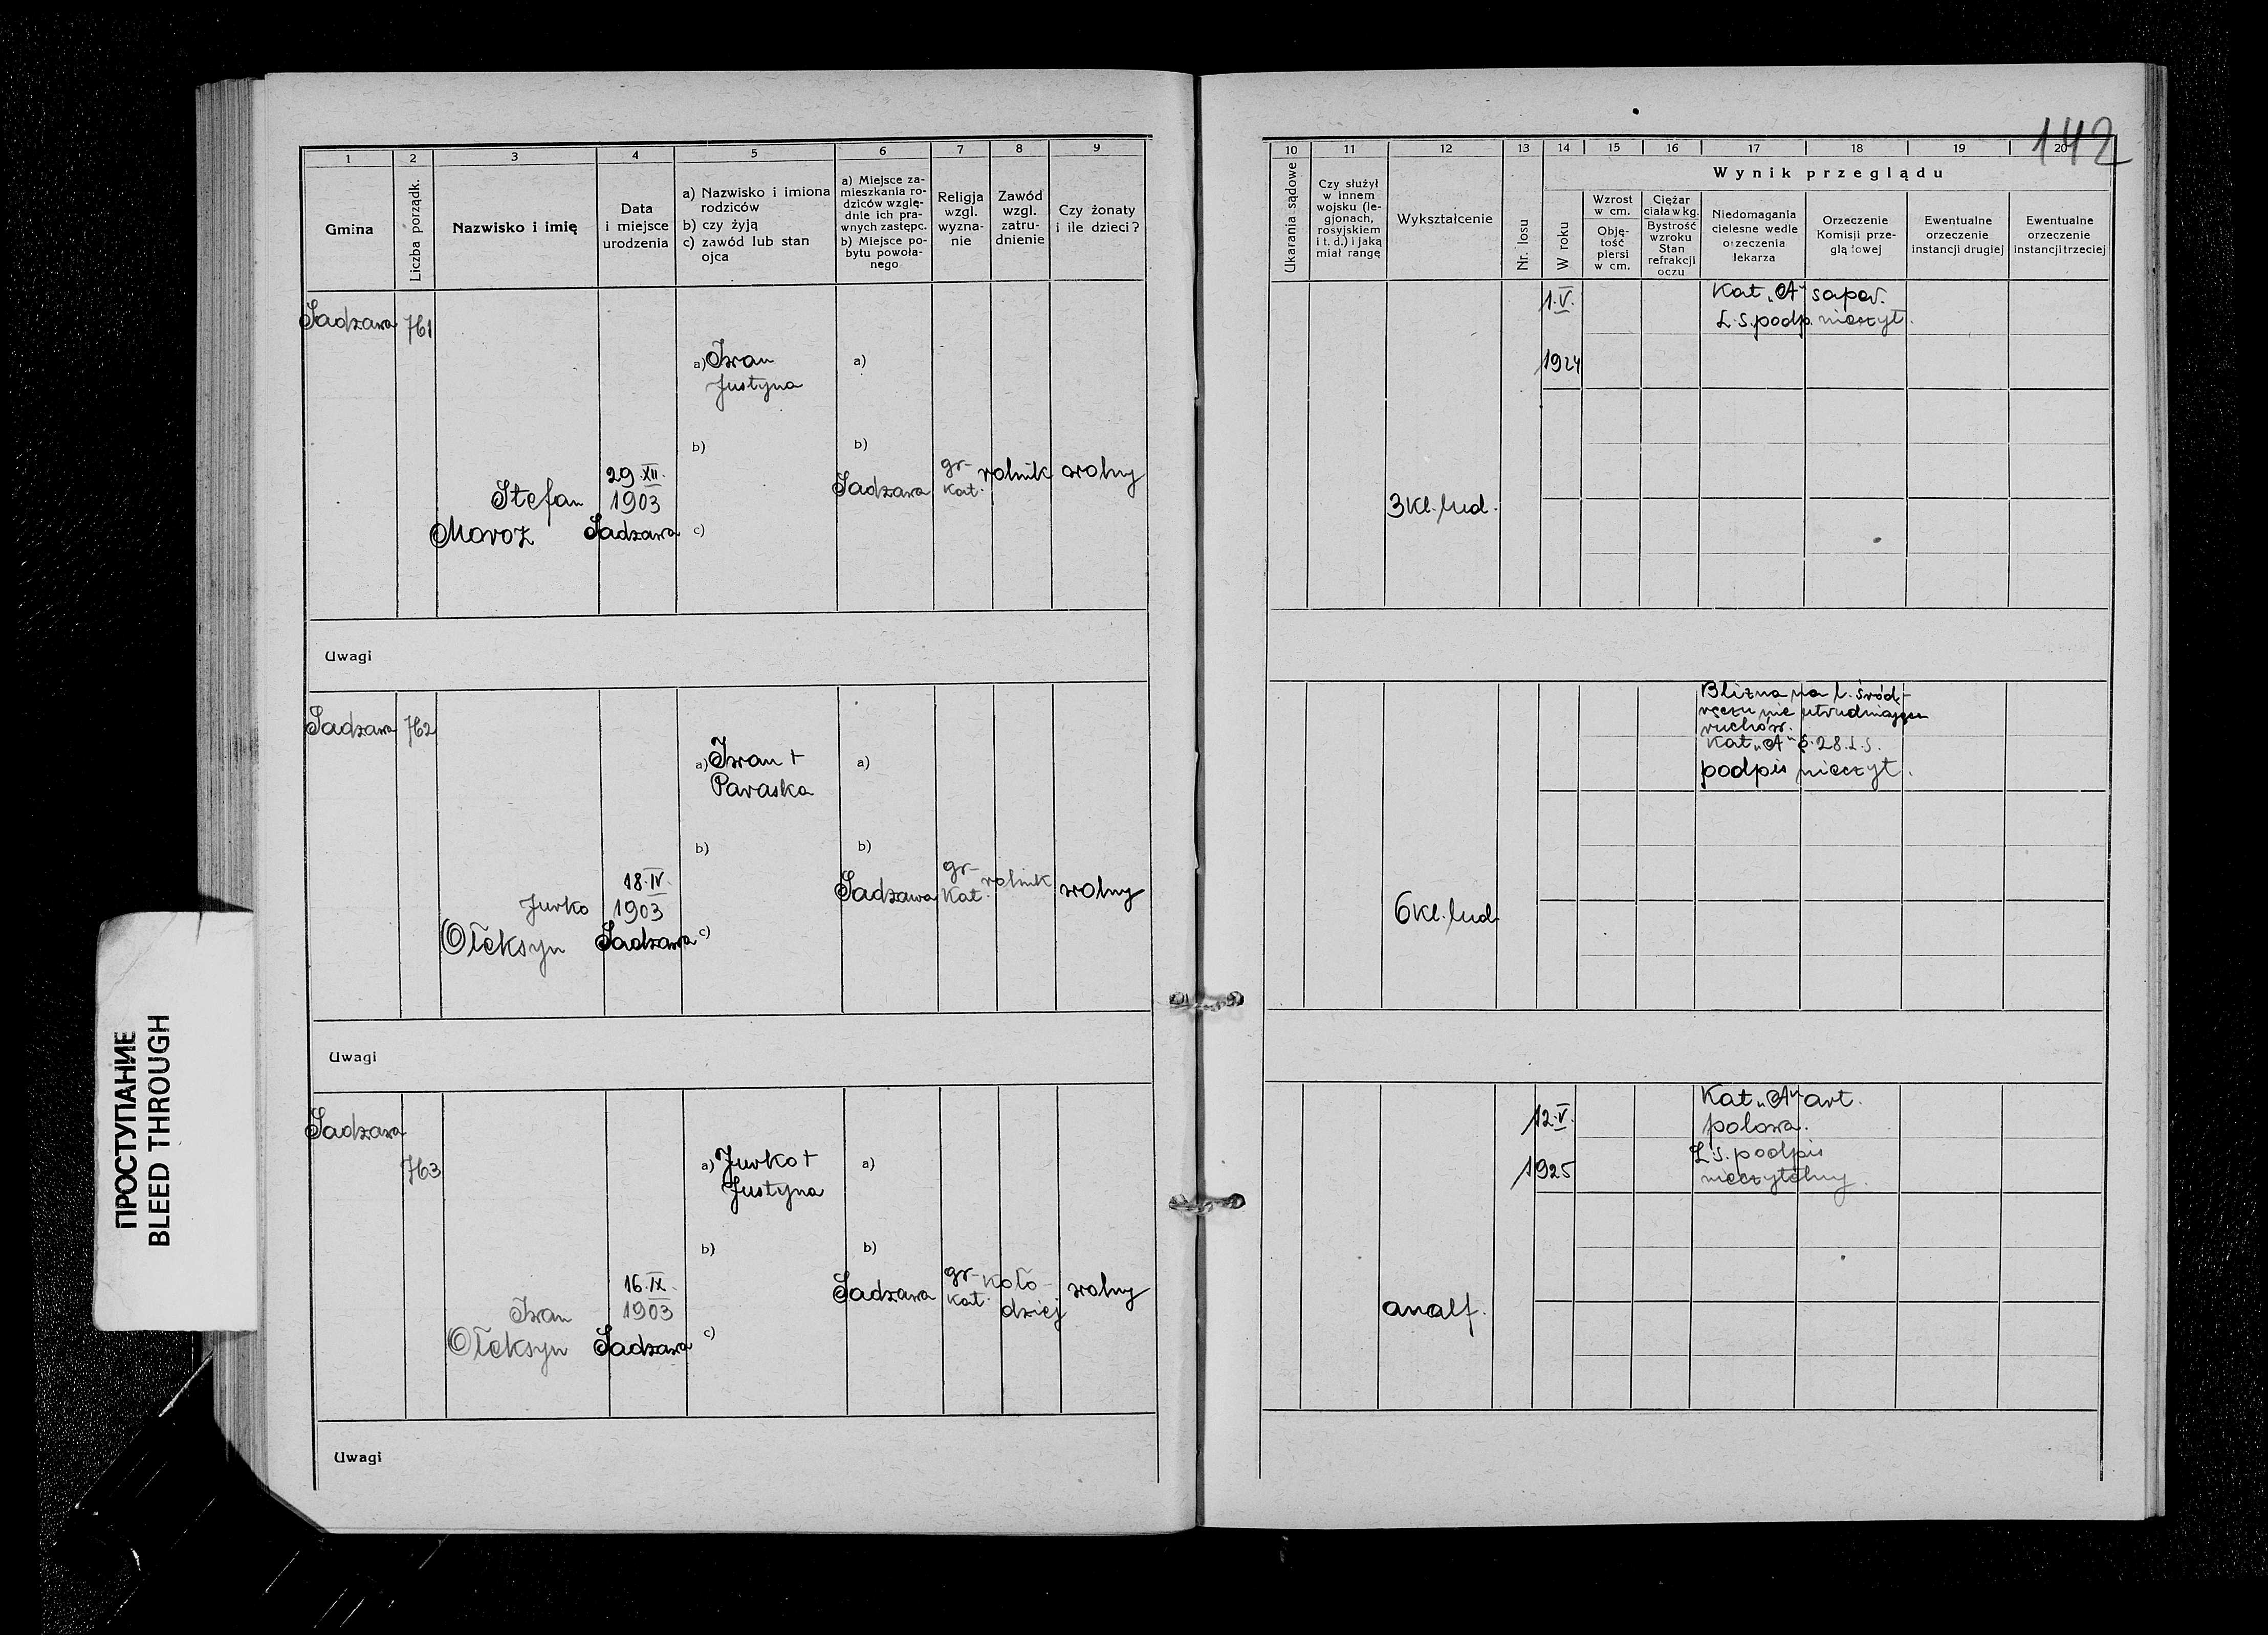 142
1 2 3 4 5 6 7 8 9
Gmina
Liczba porządk.
Nazwisko i imię
Data
i miejsce
urodzenia
a) Nazwisko i imiona
rodziców
b) czy żyją
c) zawód lub stan
ojca
a) Miejsce za-
mieszkania ro-
dziców wzglę-
dnie ich pra-
wnych zastępc.
b) Miejsce po-
bytu powoła-
nego
Religja
wzgl.
wyzna-
nie
Zawód
wzgl.
zatru-
dnienie
Czy żonaty
i ile dzieci?
10 11 12 13 14 15 16 17 18 19 20
Ukarania sądowe
Czy służył
w innem
wojsku (le-
gjonach,
rosyjskiem
i t. d.) i jaką
miał rangę
Wykształcenie
Nr. losu
Wynik przeglądu
W roku
Wzrost
w cm.
Obję-
tość
piersi
w cm.
Ciężar
ciała w kg.
Bystrość
wzroku
Stan
refrakcji
oczu
Niedomagania
cielesne wedle
orzeczenia
lekarza
Orzeczenie
Komisji prze-
glądowej
Ewentualne
orzeczenie
instancji drugiej
Ewentualne
orzeczenie
instancji trzeciej
Sadzawa 761
Stefan
Moroz
29.XII.
1903
Sadzawa
a) Iwan
Justyna
b)
c)
a)
b)
Sadzawa
gr-
kat.
rolnik
wolny
3 kl. lud.
1.V.
1924
Kat „A" saper.
L.S. podp. nieczyt.
Uwagi
Sadzawa 762
Jurko
Ołeksyn
18.IV.
1903
Sadzawa
a) Iwan +
Paraska
b)
c)
a)
b)
Sadzawa
gr-
kat.
rolnik
wolny
6 kl. lud
Blizna na l. śród-
ręczu nie utrudniająca
ruchów.
Kat „A" §.28. L.S.
podpis nieczyt.
Uwagi
Sadzawa
763
Iwan
Ołeksyn
16.IX.
1903
Sadzawa
a) Jurko +
Justyna
b)
c)
a)
b)
Sadzawa
gr-
kat.
koło-
dziej
wolny
analf.
12.V.
1925
Kat „A" art.
polowa.
L.S. podpis
nieczytelny.
Uwagi
ПРОСТУПАНИЕ
BLEED THROUGH